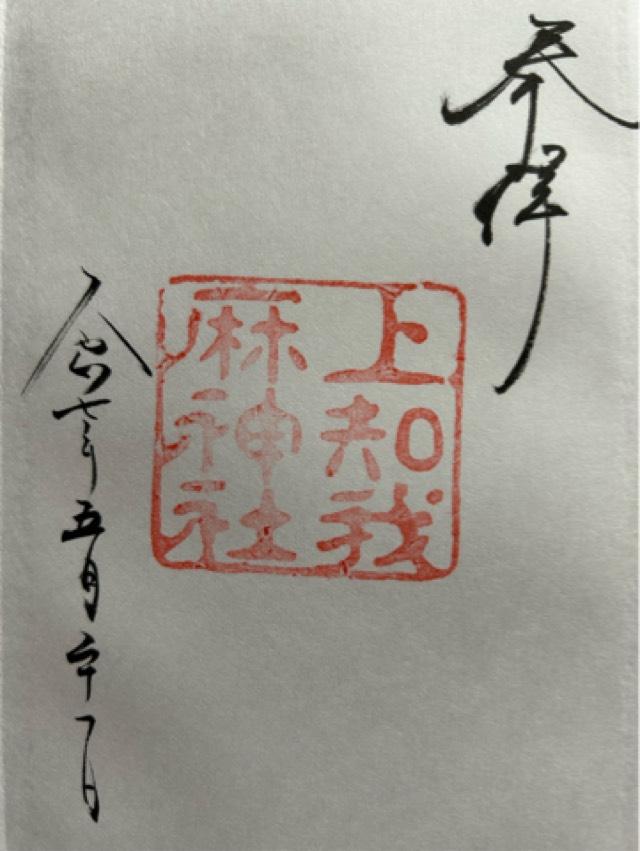 奉拝
上知我
麻神社
令和七年五月二十一日